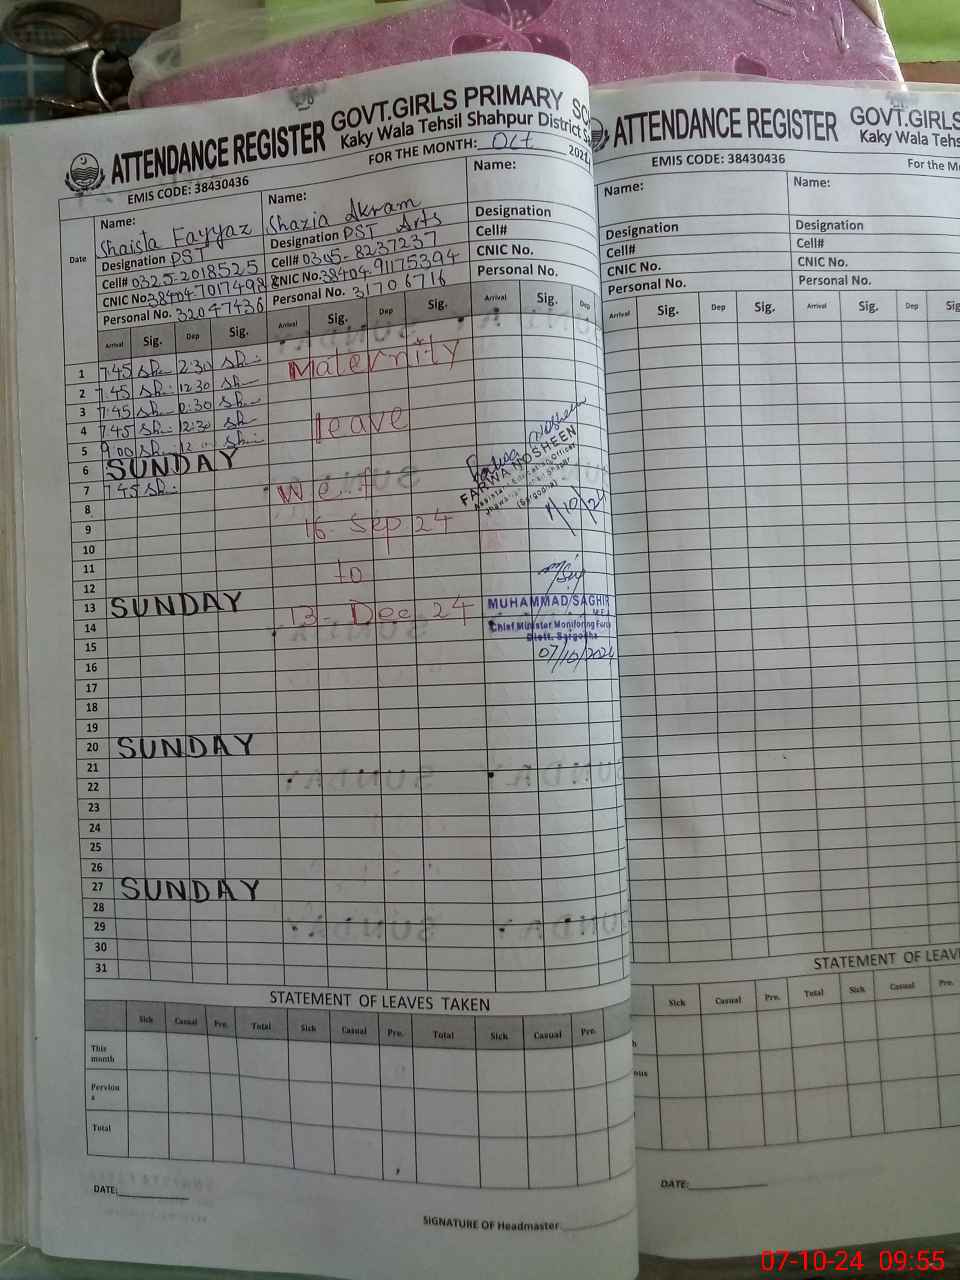 ATTENDANCE REGISTER GOVT.GIRLS PRIMARY
Kaky Wala Tehsil Shahpur District
EMIS CODE: 38430436 FOR THE MONTH: Oct
Date
Name: Shaista Fayyaz
Designation PST
Cell# 0325-2018525
CNIC No.
Personal No. 32047436
Name: Shazia Akram
Designation PST Arts
Cell# 0305-8237237
CNIC No. 38404-91175394
Personal No. 31706716
Name:
Designation
Cell#
CNIC No.
Personal No.
Arrival Sig. Dep Sig. Arrival Sig. Dep Sig. Arrival Sig. Dep
1 7:45 Sh 12:30 Sh
2 7:45 Sh 12:30 Sh
3 7:45 Sh 12:30 Sh
4 7:45 Sh 12:30 Sh
5 9:00 Sh Sh
6 SUNDAY
7 7:45 Sh
8
9
10
11
12
13 SUNDAY
14
15
16
17
18
19
20 SUNDAY
21
22
23
24
25
26
27 SUNDAY
28
29
30
31
Maternity
leave
W.e.f
16-Sep 24
to
13-Dec 24
FARWA NOSHEEN
(Sargodha)
MUHAMMAD SAGHIR
Chief Minister Monitoring Force
Distt. Sargodha
07/10/2024
STATEMENT OF LEAVES TAKEN
Sick Casual Pre. Total Sick Casual Pre. Total Sick Casual Pre.
This month
Pervious
Total
DATE:
SIGNATURE OF Headmaster
ATTENDANCE REGISTER GOVT.GIRLS
Kaky Wala
EMIS CODE: 38430436 For the
Name:
Designation
Cell#
CNIC No.
Personal No.
Name:
Designation
Cell#
CNIC No.
Personal No.
Arrival Sig. Dep Sig. Arrival Sig. Dep Sig.
STATEMENT OF
Sick Casual Pre. Total Sick Casual Pre.
DATE:
07-10-24 09:55